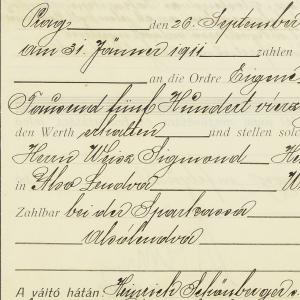 Prag, den 26. September
am 31. Jänner 1911 zahlen
an die Ordre Eugene
Tausend fünf Hundert vierz
den Werth erhalten und stellen solc
Herrn Weisz Sigmond H
in Alsó Lendva W
Zahlbar bei der Sparkassa
Alsólendva
A váltó hátán. Heinrich Schönberger